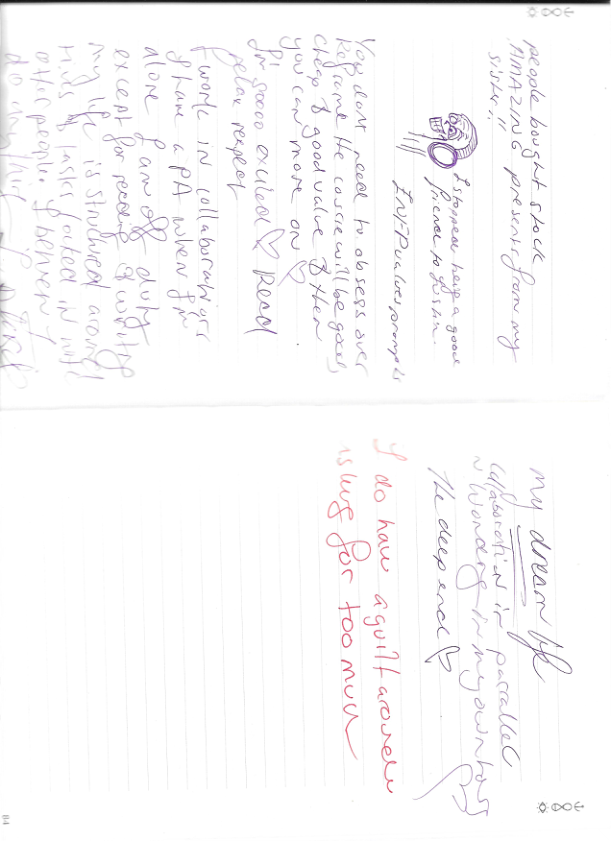 people bought stock
AMAZING presents from my
sister!!
I stopped being a good
friend to
INFP values prompts
You dont need to obsess over
the cossie will be good,
cheap & good value & then
you can move on ♡
I'm soooo excited ♡ Read
relax respect
I work in collaborations
I have a PA when I'm
alone I am off duty
except for reading & writing
my life is structured around
tasks in with
other people. I
do anything
My dream life
collaboration in parallel
wonderg in my own
The deep end ♡
I do have a guilt around
asking for too much
84